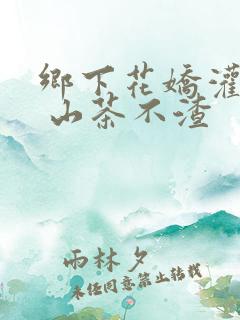 鄉下花嬌灌
山茶不渣
雨林夕
未经同意禁止转载